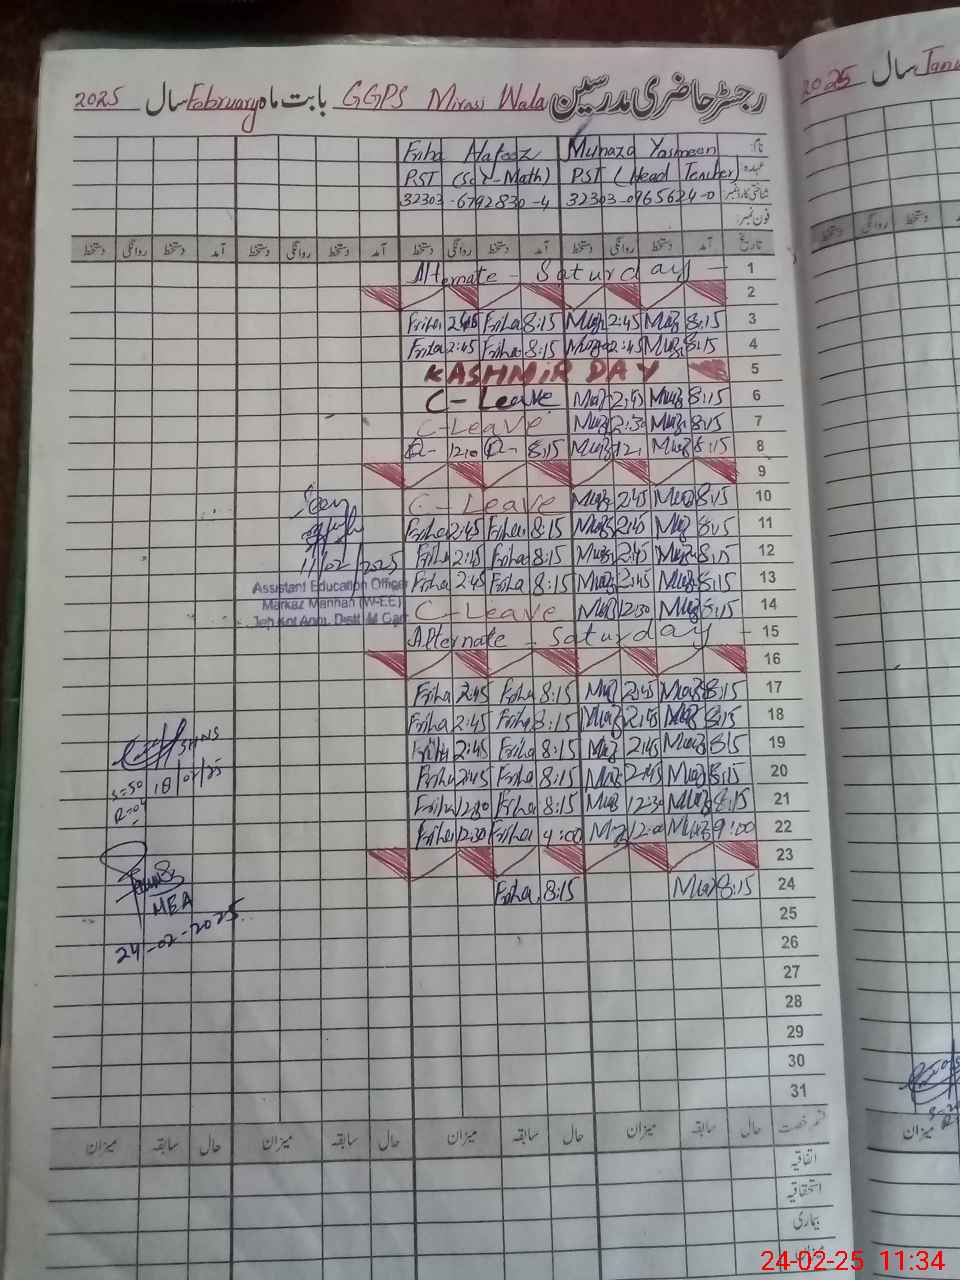 رجسٹر حاضری مدرسین GGPS Mirasi Wala بابت ماہ February سال 2025
سال 2025
نام: Munaza Yasmeen Friha Hafeez
عہدہ PST (Head Teacher) PST (Sci-Math)
شناختی کارڈ نمبر: 32303-0965624-0 32303-6792830-4
فون نمبر:
تاریخ آمد دستخط روانگی دستخط آمد دستخط روانگی دستخط آمد دستخط روانگی دستخط آمد دستخط روانگی دستخط
Alternate - Saturday - 1
2
Friha 2:45 Friha 8:15 Muaz 2:45 Muaz 8:15 3
Friha 2:45 Friha 8:15 2:45 Muaz 8:15 4
KASHMIR DAY 5
C-Leave Muaz 2:45 Muaz 8:15 6
C-Leave Muaz 2:30 Muaz 8:15 7
8:15 Muaz Muaz 8:15 8
9
C-Leave Muaz 2:45 Muaz 8:15 10
Friha 2:45 Friha 8:15 Muaz 2:45 Muaz 8:15 11
Friha 2:45 Friha 8:15 Muaz 2:45 Muaz 8:15 12
11/02/2025
Friha 2:45 Friha 8:15 Muaz 2:45 Muaz 8:15 13
Assistant Education Officer
Markaz Manhan (W-EE)
C-Leave Muaz 12:30 Muaz 8:15 14
Alternate - Saturday - 15
16
Friha 2:45 Friha 8:15 Muaz 2:45 Muaz 8:15 17
Friha 2:45 Friha 8:15 Muaz 2:45 Muaz 8:15 18
Friha 2:45 Friha 8:15 Muaz 2:45 Muaz 8:15 19
Friha 2:45 Friha 8:15 Muaz 2:45 Muaz 8:15 20
S=50 18/02/25
Friha 12:30 Friha 8:15 Muaz 12:30 Muaz 8:15 21
Friha 12:30 Friha 9:00 Muaz 12:00 Muaz 9:00 22
23
Friha 8:15 Muaz 8:15 24
MEA
24-02-2025
25
26
27
28
29
30
31
قسم رخصت حال سابقہ میزان حال سابقہ میزان حال سابقہ میزان حال سابقہ میزان
میزان
اتفاقیہ
استحقاقیہ
بیماری
میزان
24-02-25 11:34